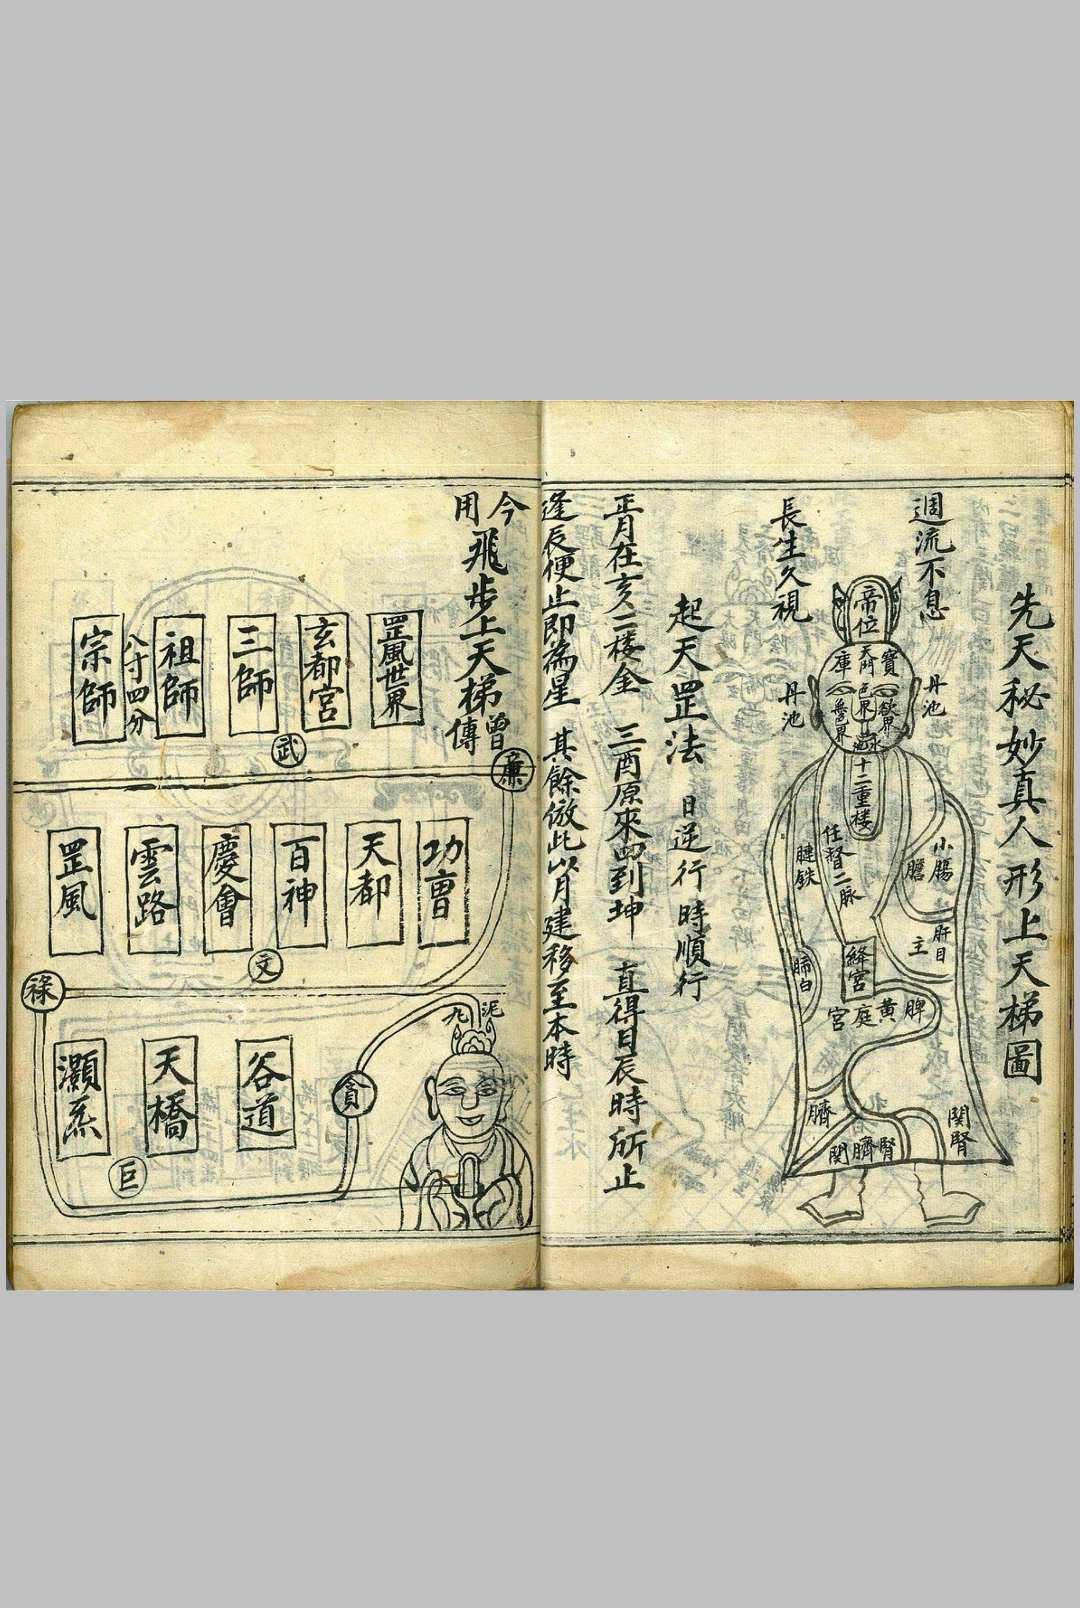 先天秘妙真人形上天梯圖
週流不息
長生久視
帝位
天門
寶
庫
欲界
色界
丹池
丹池
十二重楼
任督二脉
小腸
膽
肝目
主
絳宮
脾
黃庭宮
臍
関腎
腎
臍
関
起天罡法　日逆行　時順行
正月在亥二楼全　三酉原來四到坤　直得日辰時所止
逢辰便止即為星　其餘倣此以月建移至本時
今用飛步上天梯曾傳
罡風世界
玄都宮
三師
祖師
八寸四分
宗師
武
廉
功曹
天都
百神
慶會
雲路
罡風
文
祿
泥丸
貪
谷道
天橋
灝系
巨